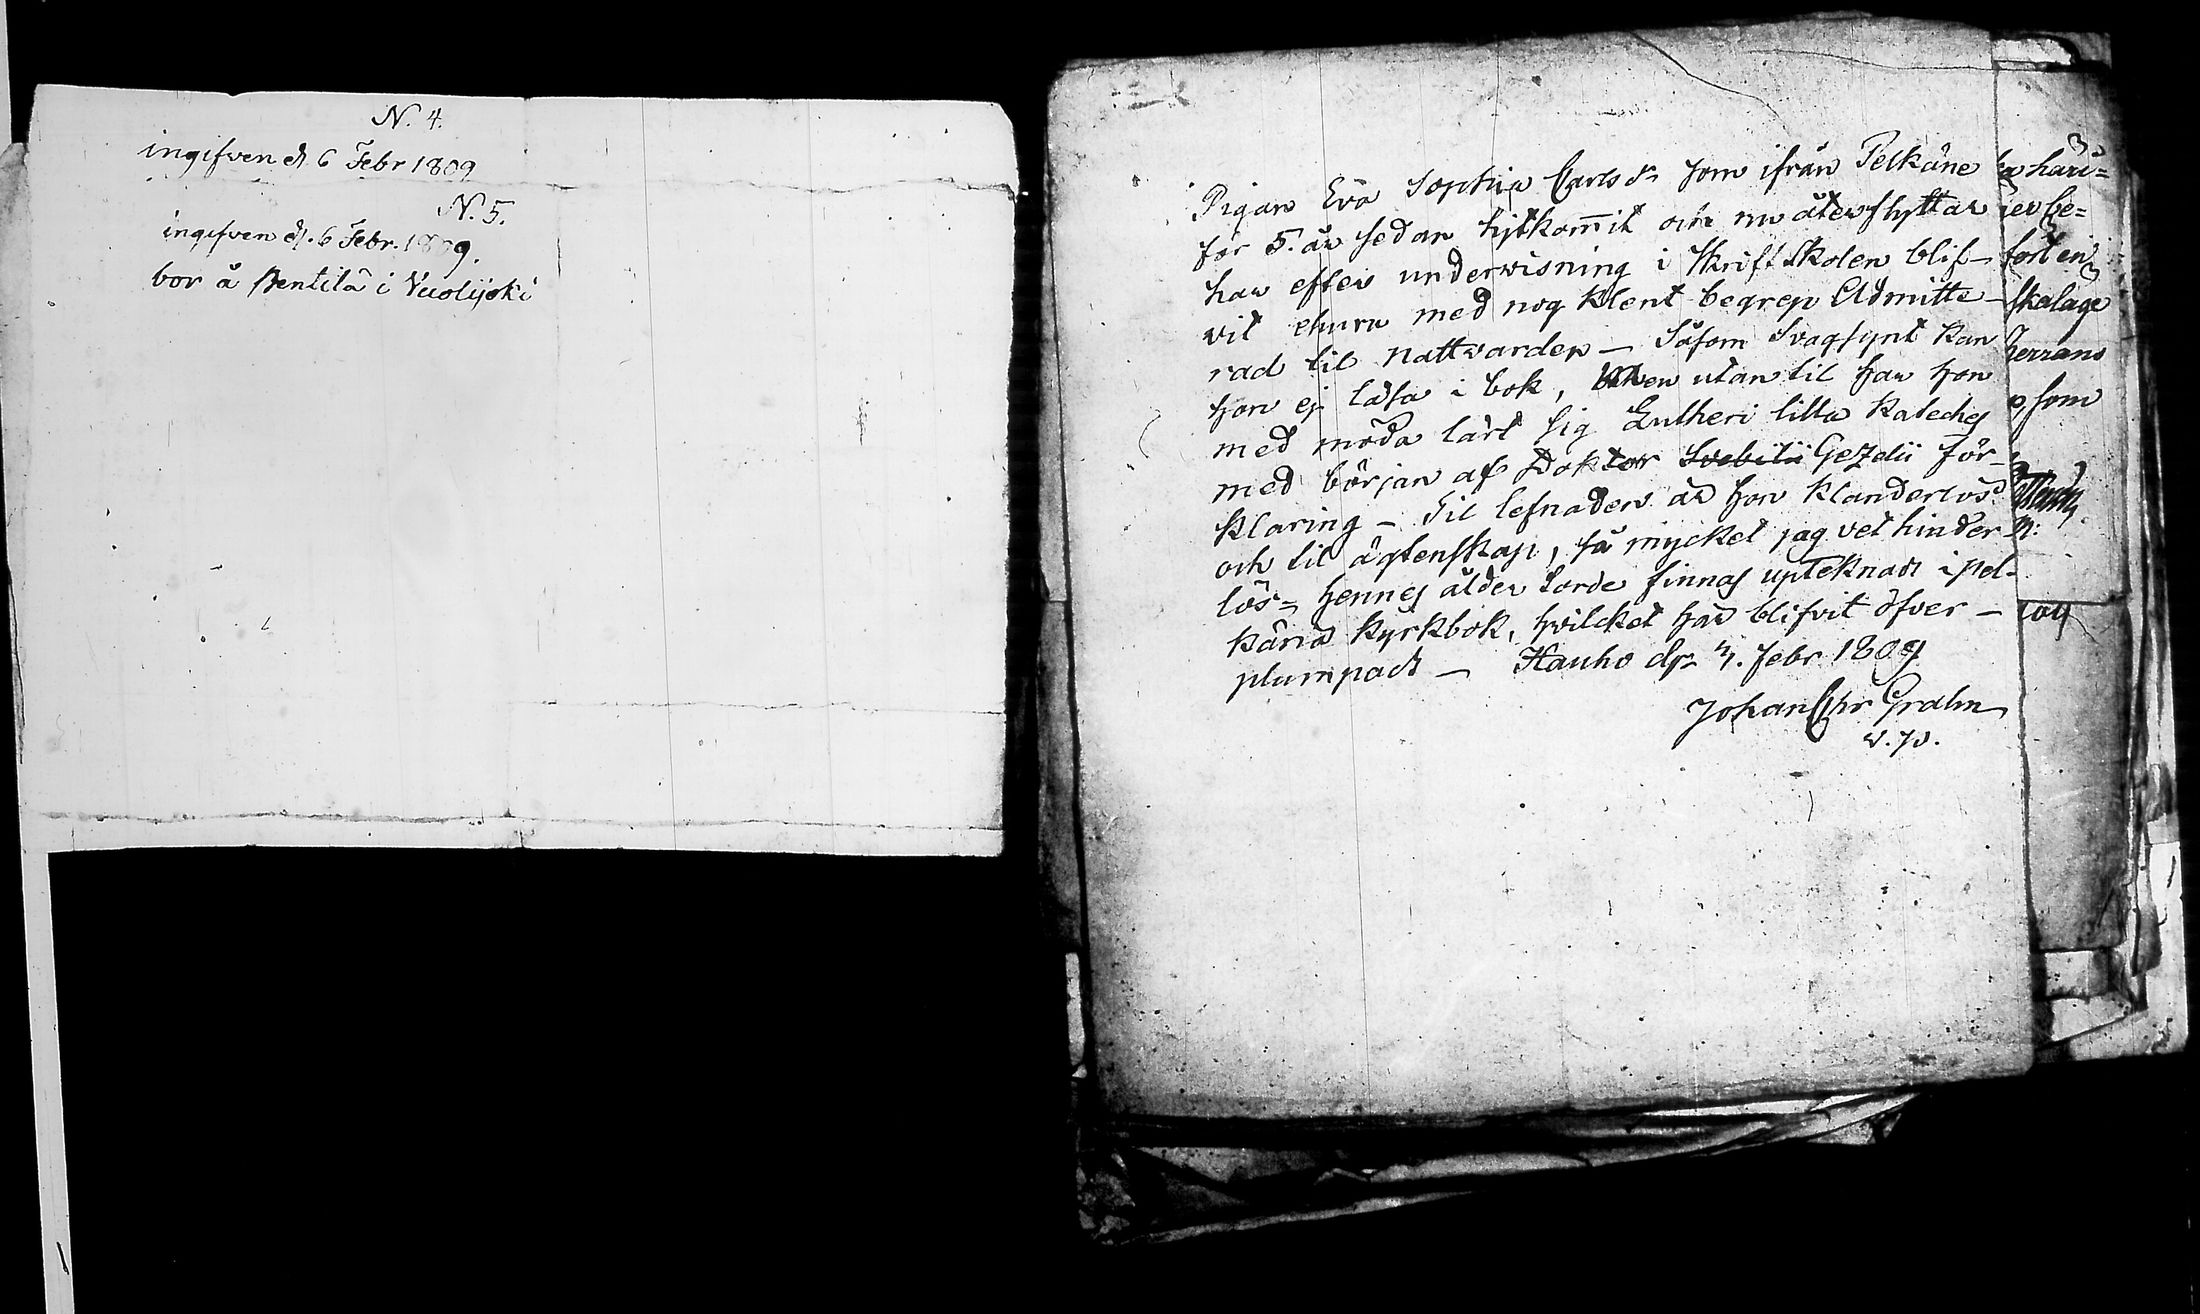 N. 4.
ingifven d. 6 Febr 1809
N. 5.
ingifven d. 6 Febr. 1809.
bor å Pentilä i Vuolijoki
Pigan Eva Sophia Carls dr som ifrån Pelkäne
för 5. år sedan hitkom̅it och nu återflyttar
har efter underwisning i Skriftskolen blif-
vit ehuru med nog klent begrep Admitte-
rad til Nattvarden — Såsom Svagsynt kan
hon ej läsa i bok, men utan til har hon
med möda lärt sig Lutheri lilla Kateches
med början af Doktor Svebilii Gezelii för-
klaring — Til lefnaden är hon klanderlös
och til ägtenskap, så mycket jag vet hinder
lös = hennes ålder torde finnas uptecknad i Pel-
käne Kyrkbok, hvilcket här blifvit öfver —
plumpadt — Hauho d. 4. Febr 1809
Johan Chr Gralm
v. p.
häri=
be=
fört en
skalage
herrans
som